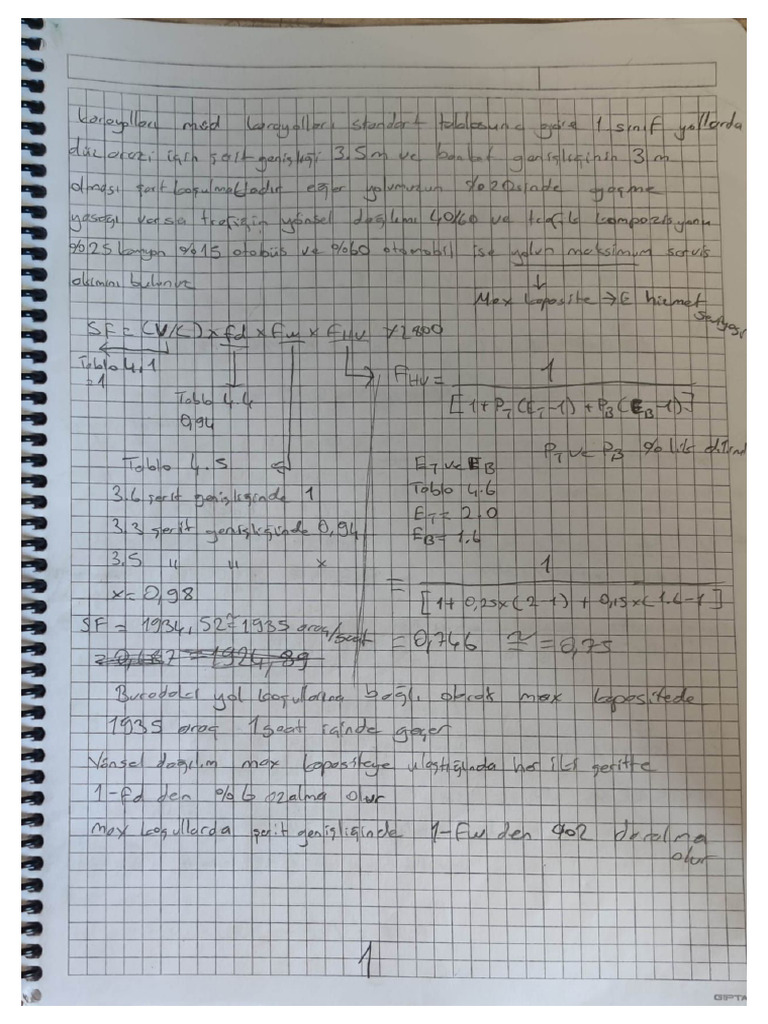 Karayolları müd karayolları standart tablosuna göre 1 sınıf yollarda
düz arazi için şerit genişliği 3.5m ve banket genişliğinin 3 m
olması şart koşulmaktadır eğer yolumuzun %20sinde geçme
yasağı varsa trafiğin yönsel dağılımı 40/60 ve trafik kompozisyonu
%25 kamyon %15 otobüs ve %60 otomobil ise yolun maksimum servis
akımını bulunuz
Max kapasite → E hizmet
seviyesi
SF = (V/C) x fd x Fw x FHV x 2800
Tablo 4.1
= 1
Tablo 4.4
0,94
FHV = 1 / [1 + PT (ET-1) + PB (EB-1)]
PT ve PB %
Tablo 4.5
3.6 şerit genişliğinde 1
3.3 şerit genişliğinde 0,94
3.5 " " x
x = 0,98
ET ve EB
Tablo 4.6
ET = 2,0
EB = 1.6
= 1 / [1 + 0,25x(2-1) + 0,15x(1.6-1]
= 0,746 ≅ = 0,75
SF = 1934,52 ≅ 1935 araç/saat
Buradaki yol koşullarına bağlı olarak max kapasitede
1935 araç 1 saat içinde geçer
Yönsel dağılım max kapasiteye ulaştığında her iki şeritte
1-fd den %6 azalma olur
max koşullarda şerit genişliğinde 1-Fw den %02 daralma
olur
1
GIPTA